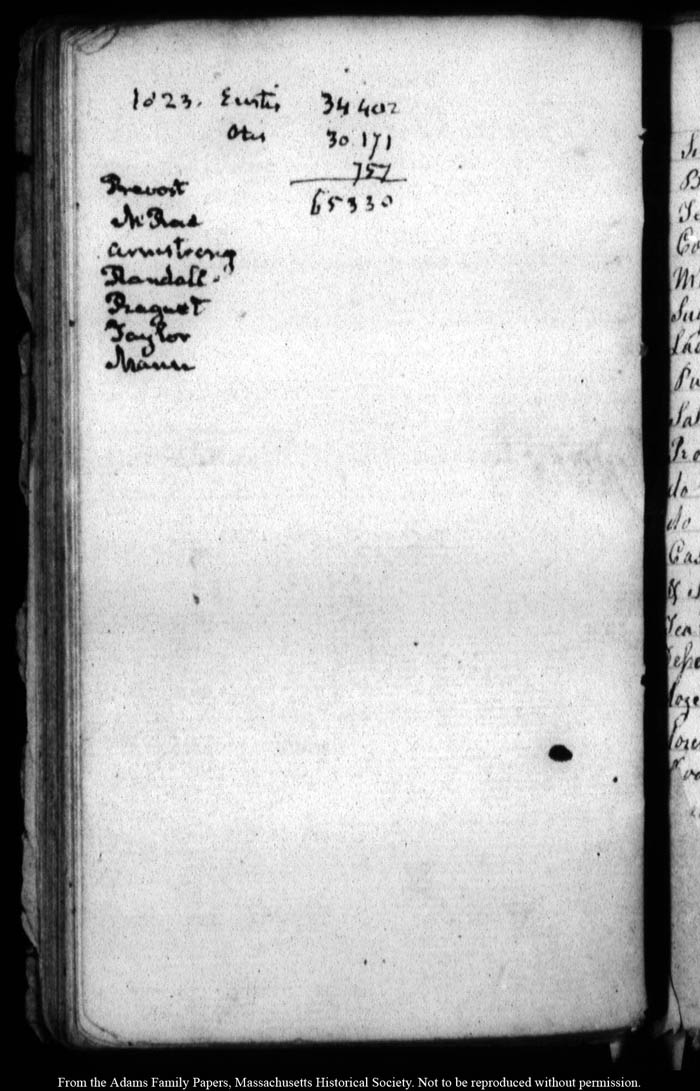 1823. Eustis 34 402
Otis 30.171
757
65330
Prevost
McRad
Armstrong
Randall.
Praguet
Taylor
Mann
Pro
do
do
From the Adams Family Papers, Massachusetts Historical Society. Not to be reproduced without permission.